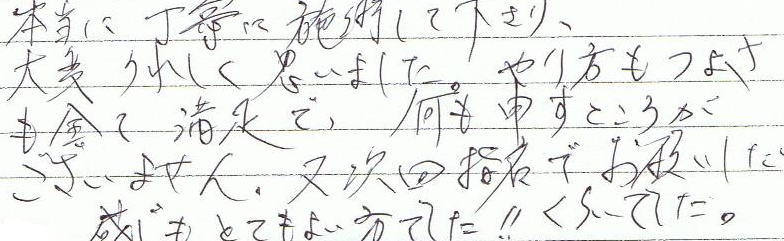 本当に丁寧に施術して下さり、
大変うれしく思いました。やり方もつよさ
も全て満足で、何も申すところが
ございません。又次回指名でお願いした
感じもとてもよい方でした!! くらいでした。